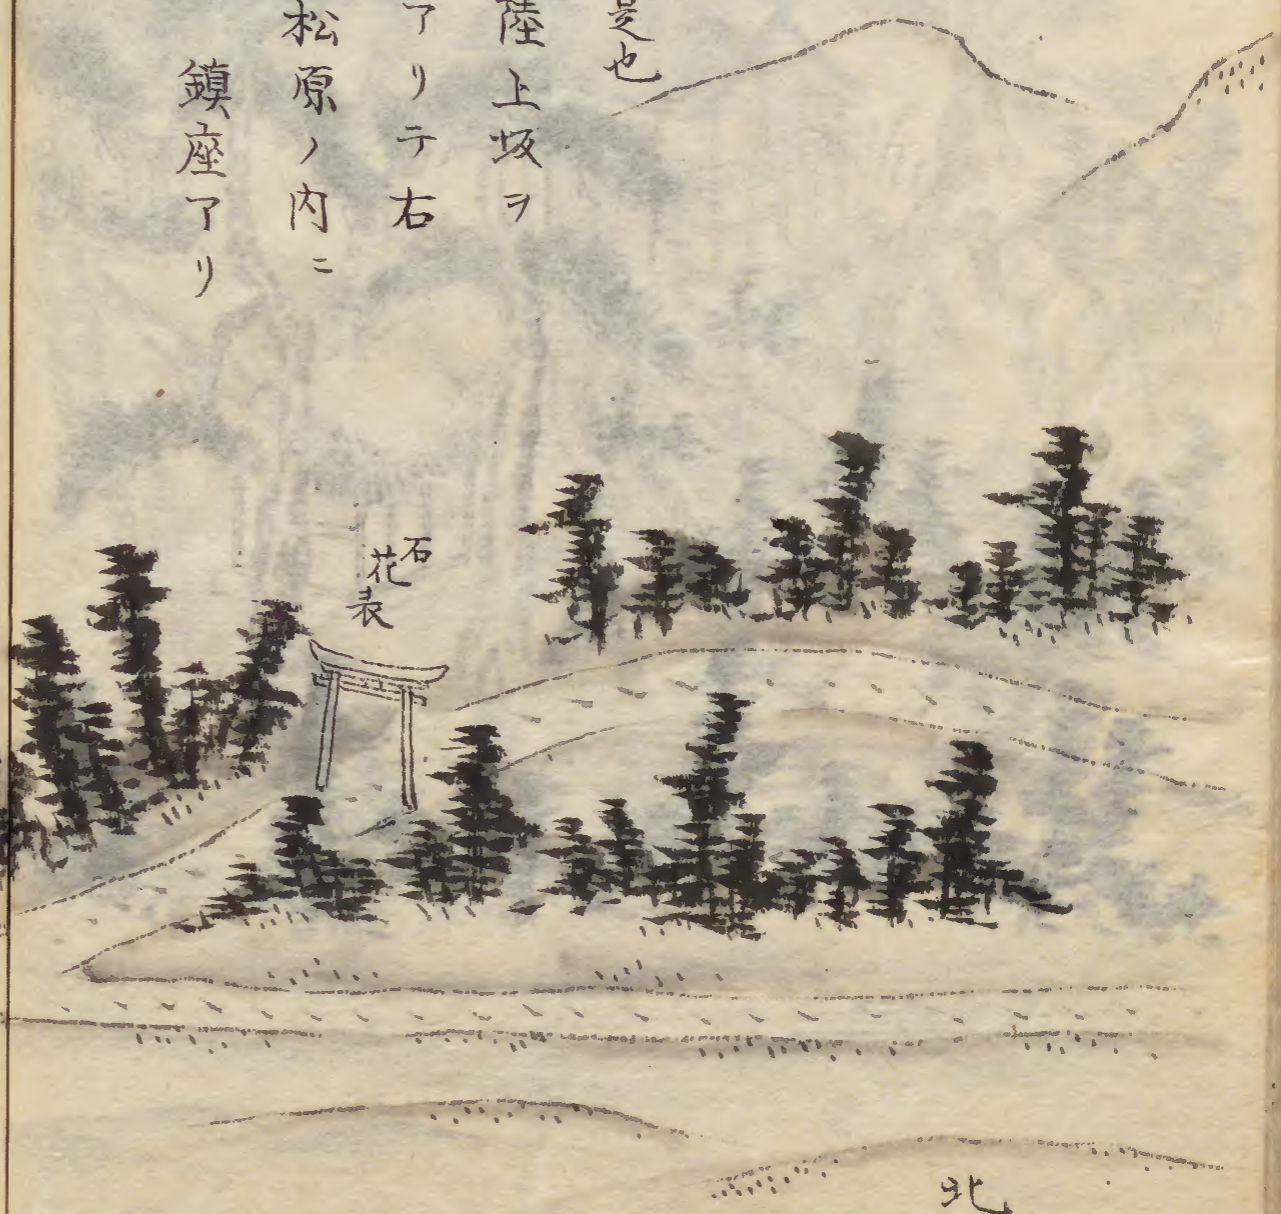 是也
陸上坂ヲ
アリテ右
松原ノ内ニ
鎮座アリ
石
花表
北